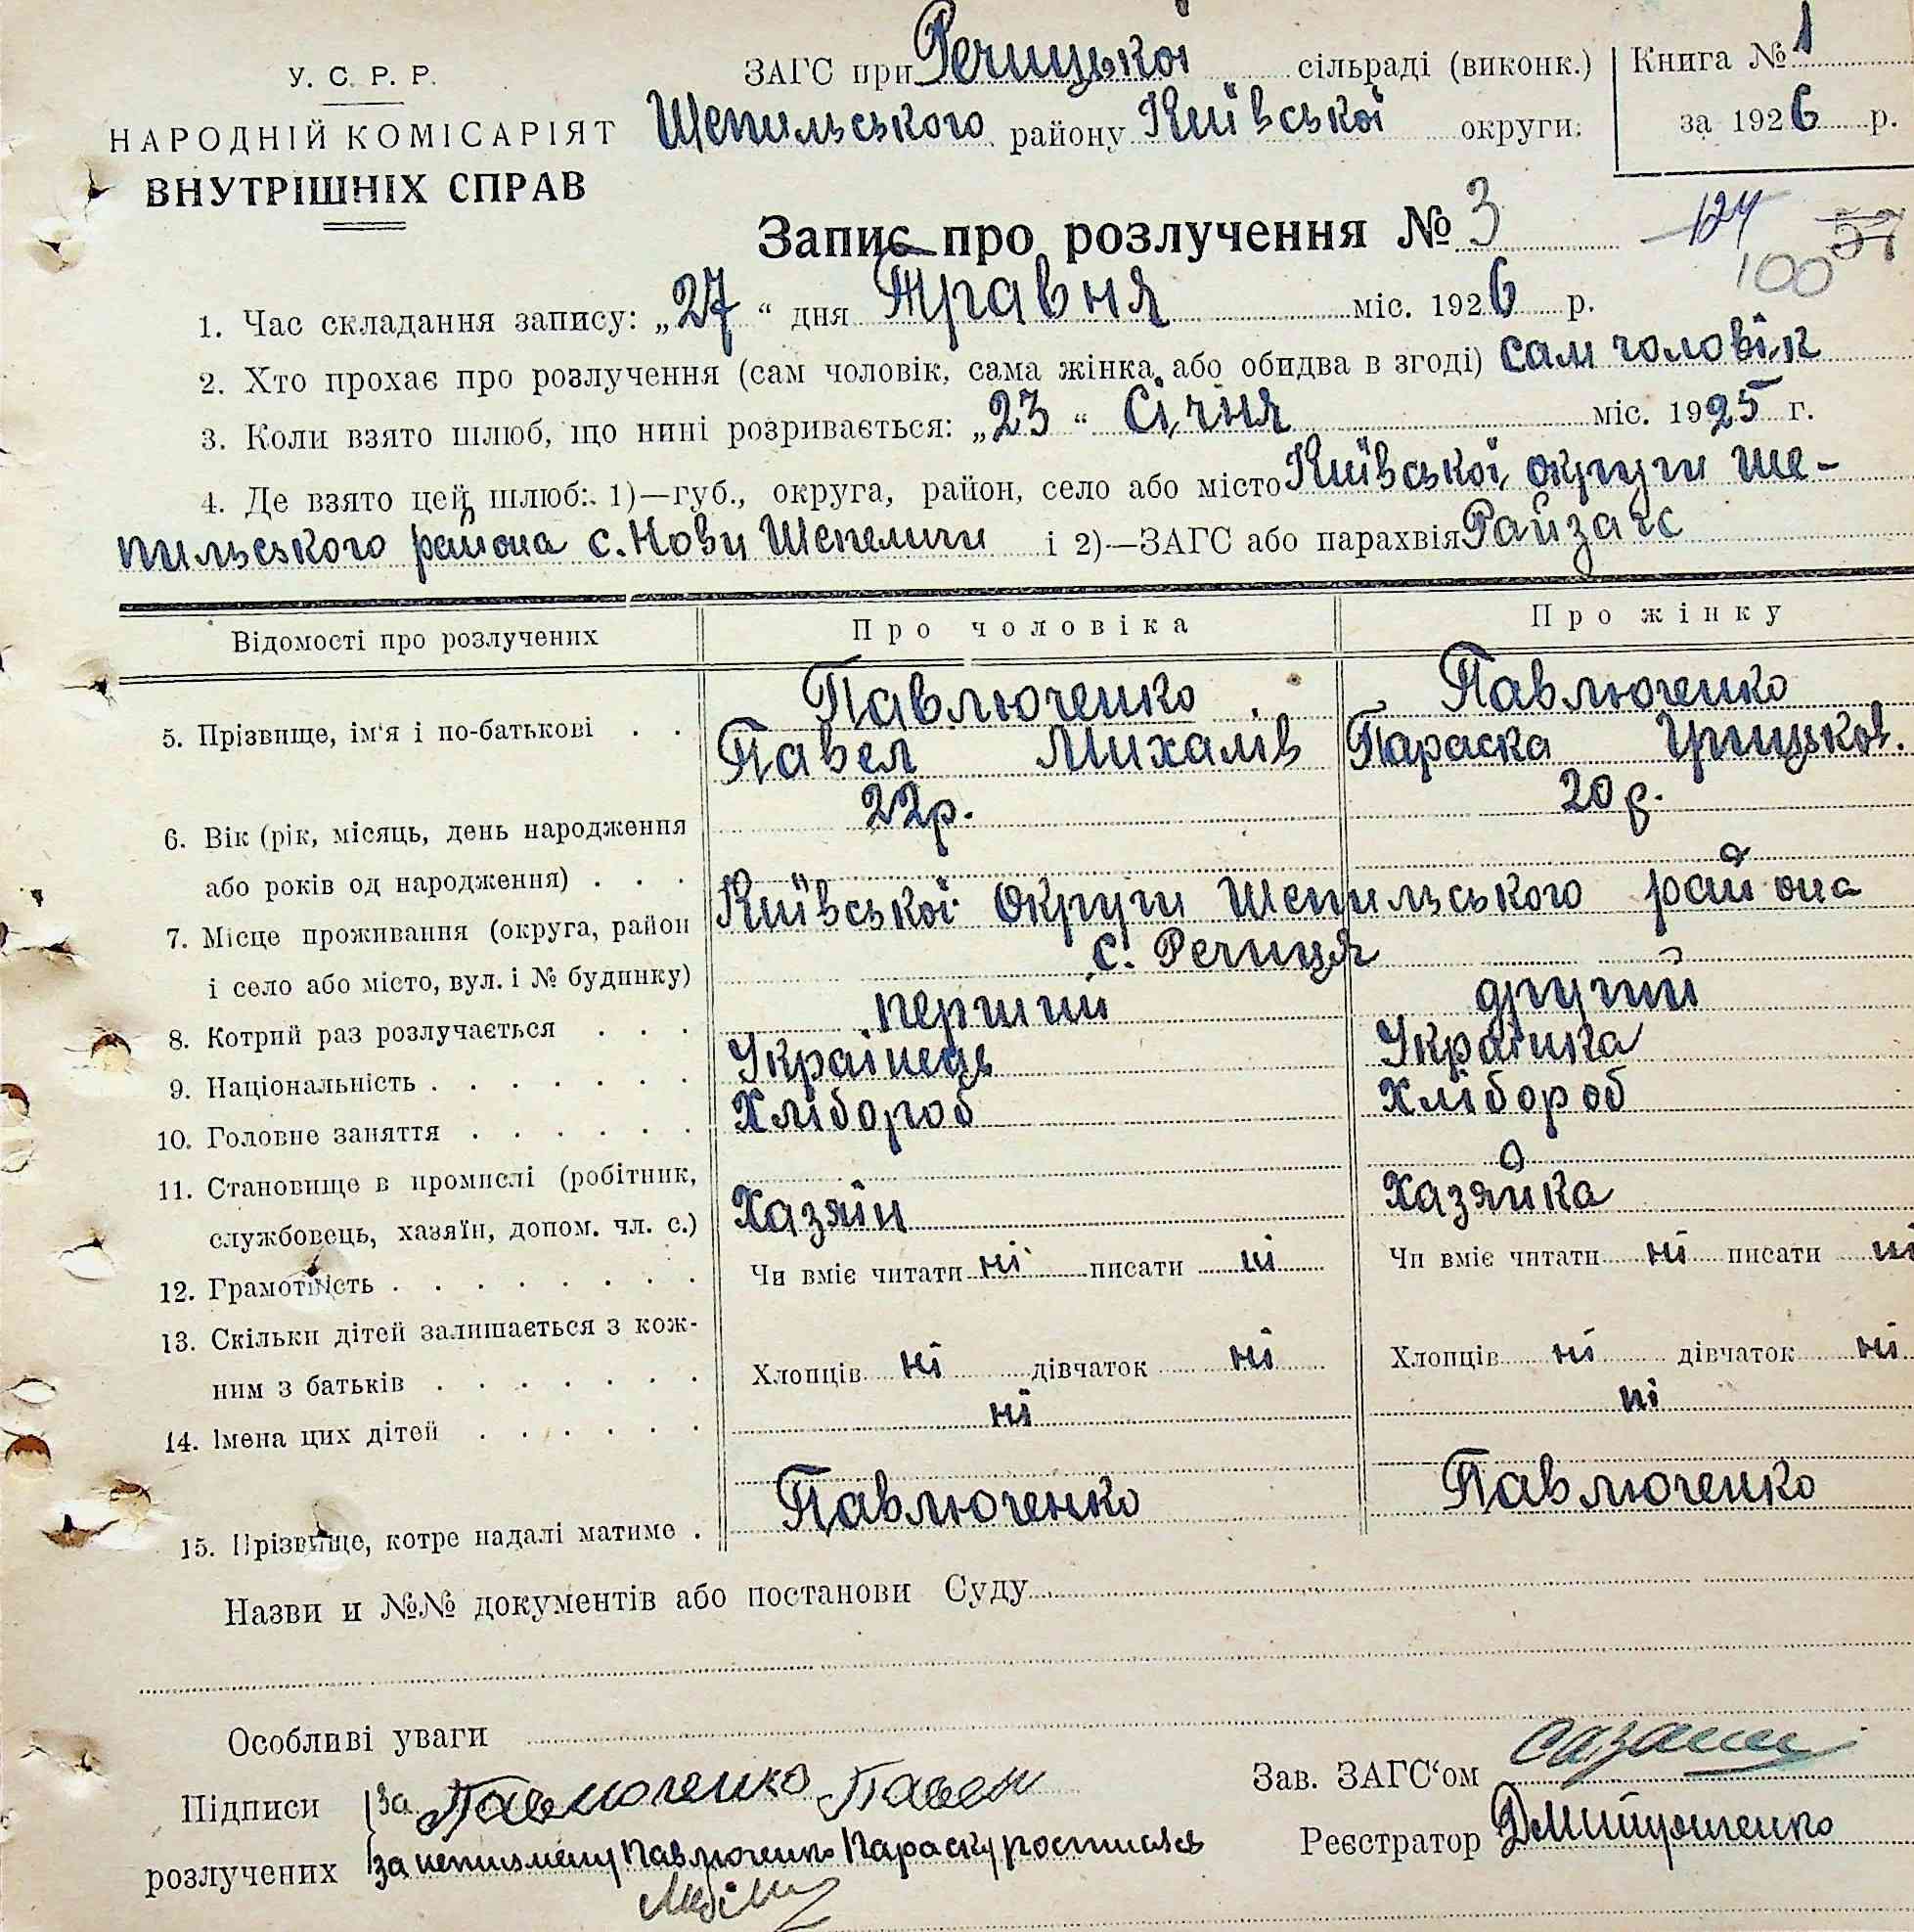 У. С. Р. Р.
НАРОДНІЙ КОМІСАРІЯТ
ВНУТРІШНІХ СПРАВ
ЗАГС при Речицькоі сільраді (виконк.)
Шепильського району Київськоі округи.
Книга № 1
за 1926 р.
Запис про розлучення № 3
124 57
100
1. Час складання запису: „27“ дня Травня міс. 1926 р.
2. Хто прохає про розлучення (сам чоловік, сама жінка або обидва в згоді) сам чоловік
3. Коли взято шлюб, що нині розривається: „23“ Січня міс. 1925 г.
4. Де взято цей шлюб: 1)—губ., округа, район, село або місто Київськоі округи Ше-
пильського района с. Нови Шепеличи і 2)—ЗАГС або парахвія Райзагс
Відомості про розлучених Про чоловіка Про жінку
Павлюченко Павлюченко
5. Прізвище, ім‘я і по-батькові . . Павел Михалів Параска Грицьков.
6. Вік (рік, місяць, день народження 22р. 20р.
або років од народження) . . .
7. Місце проживання (округа, район Київськоі Округи Шепильського района
і село або місто, вул. і № будинку) с. Речиця
8. Котрий раз розлучається . . . перший другий
9. Національність . . . . . . . Украінець Украінка
10. Головне заняття . . . . . . Хлібороб Хлібороб
11. Становище в промислі (робітник,
службовець, хазяїн, допом. чл. с.) Хазяїн Хазяйка
12. Грамотність . . . . . . . . Чи вміє читати ні писати ні Чи вміє читати ні писати ні
13. Скільки дітей залишається з кож-
ним з батьків . . . . . . . Хлопців ні дівчаток ні Хлопців ні дівчаток ні
14. Імена цих дітей . . . . . . ні ні
15. Прізвище, котре надалі матиме . Павлюченко Павлюченко
Назви и №№ документів або постанови Суду
Особливі уваги
Підписи За Павлюченко Павел
розлучених за неписмену Павлюченко Параску росписався
Зав. ЗАГС‘ом
Реєстратор Дмитрошенко